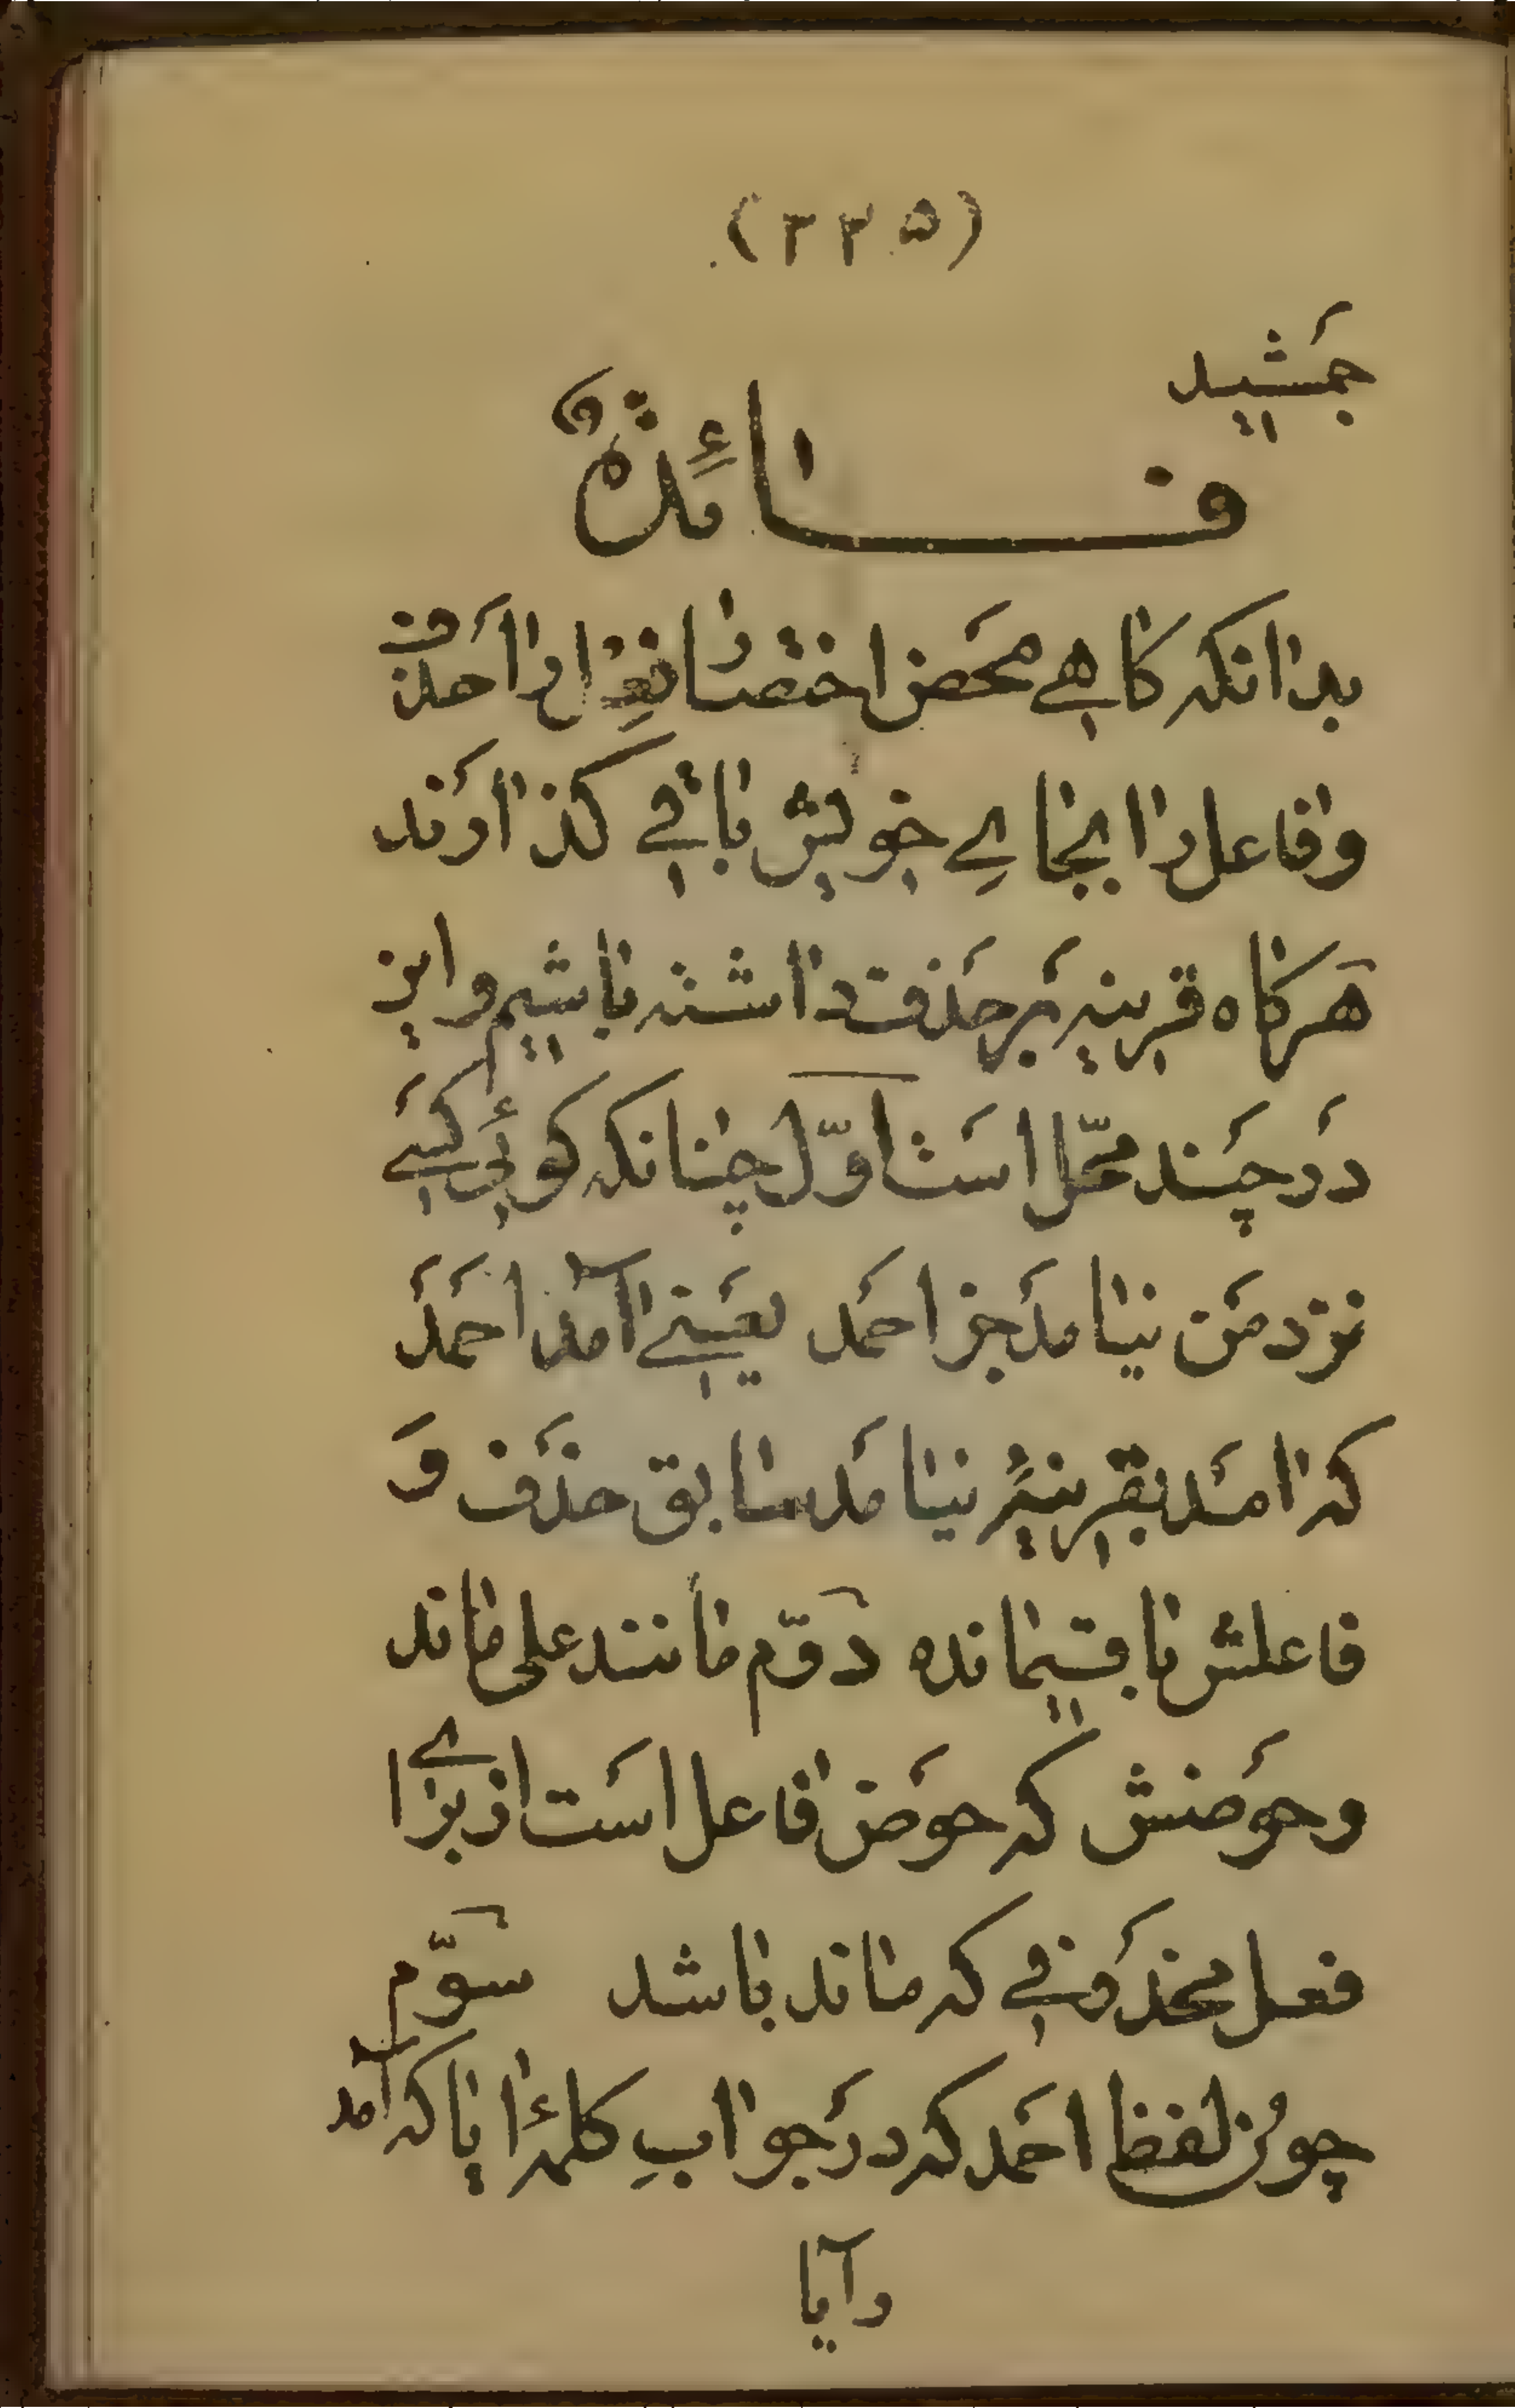 (٢٣۵)
جمشید
فائدهٌ
بدانکه کاهے محض اختصار فعل را حذف
و فاعل را بجاے خویش باقے کذارند
هرکاه قرینه بر حذف داشته باشیم و این
در چند محلّ است اوّل چنانکه کوئی کسے
نزد من نیامد جز احمد یعنے آمد احمد
که آمد بقرینهٔ نیامد سابق حذف و
فاعلش باقیمانده دوّم مانند علی ماند
و حوضش که حوض فاعل است از براے
فعل محذوفے که ماند باشد سوّم
چون لفظ احمد که در جوابِ کلمهٔ ایا که آمد
و آیا